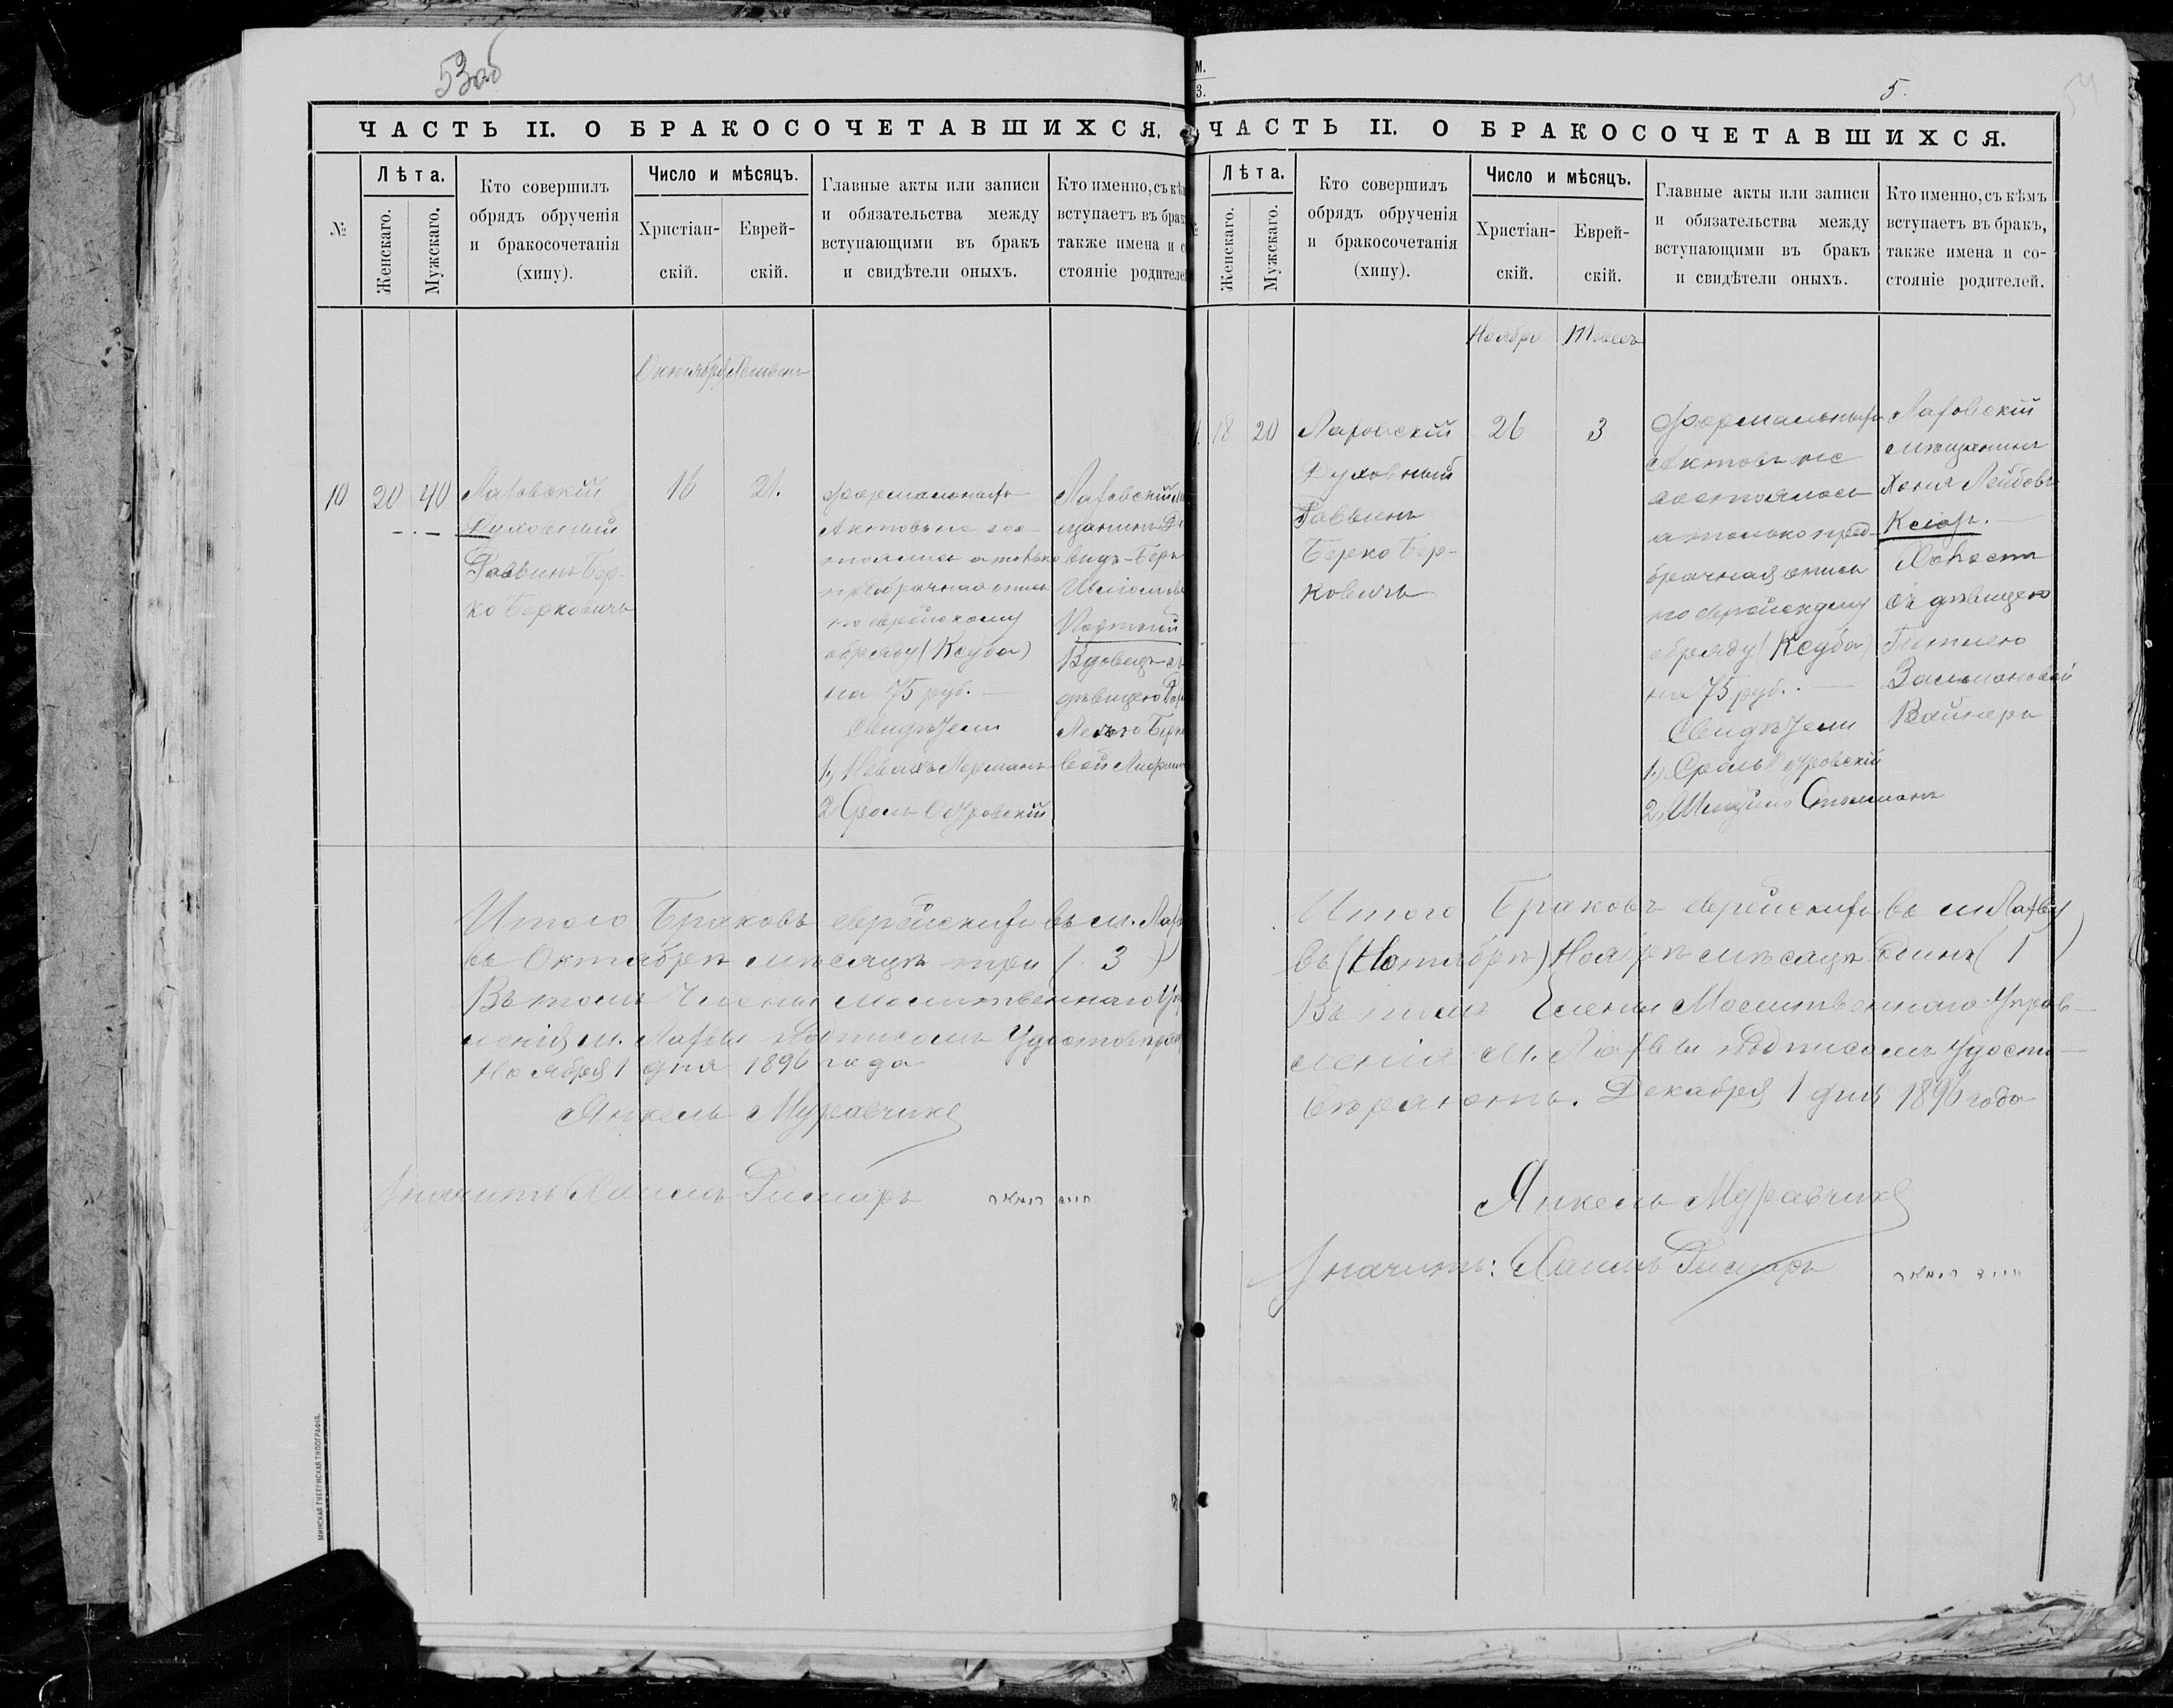 53об
ЧАСТЬ II. О БРАКОСОЧЕТАВШИХСЯ,
№
Лѣта.
Женскаго.
Мужскаго.
Кто совершилъ
обрядъ обрученія
и бракосочетанія
(хипу).
Число и мѣсяцъ.
Христіан-
скій.
Еврей-
скій.
Главные акты или записи
и обязательства между
вступающими въ бракъ
и свидѣтели оныхъ.
Кто именно, съ кѣ
вступаетъ въ бра
также имена и с
стояніе родителе
Октября
Хешвенъ
10
20
40
Лаховскій
Духовный
Раввинъ Бер-
ко Берковичъ
16
21.
Формальныхъ
Актовъ не сос-
тоялись а только
предбрачная опись
по еврейскому
обряду (Ксуба)
на 75 руб. —
Свидѣтели
1., Левманъ
2 Сроль Островскій
Лаховскій
щанинъ
видъ-Беръ
Вдовецъ съ
дѣвицею
вой
Итого Браковъ еврейскихъ въ м. Лахв
въ Октябрѣ мѣсяцѣ три (3)
Въ томъ Члены Молитвеннаго Уп
ленія м. Лахвы подписомъ Удостовѣря
Ноября 1 дня 1896 года
Янкель Муравчикъ
Значитъ
МИНСКАЯ ГУБЕРНСКАЯ ТИПОГРАФІЯ.
М.
З.
5.
54
ЧАСТЬ II. О БРАКОСОЧЕТАВШИХСЯ.
Лѣта.
Женскаго.
Мужскаго.
Кто совершилъ
обрядъ обрученія
и бракосочетанія
(хипу).
Число и мѣсяцъ.
Христіан-
скій.
Еврей-
скій.
Главные акты или записи
и обязательства между
вступающими въ бракъ
и свидѣтели оныхъ.
Кто именно, съ кѣмъ
вступаетъ въ бракъ,
также имена и со-
стояніе родителей.
Ноября
Тевесъ
18
20
Лаховскій
Духовный
Раввинъ
Берко Бер-
ковичъ
26
3
Формальныхъ
Актовъ не
состоялось
а только пред-
брачная опись
по еврейскому
обряду (Ксуба)
на 75 руб.. —
Свидѣтели
1., Сроль Островскій
2., Столманъ
Лаховскій
мѣщанинъ
Хоня Лейбовъ
Холостъ
съ дѣвицею
Гитлею
Залмановой
Вайнеръ
Итого Браковъ еврейскихъ въ м Лахвы
въ (Ноктябрѣ) Ноябрѣ мѣсяцѣ Одинъ (1)
Въ томъ Члены Молитвеннаго Управ-
ленія м. Лахвы подписомъ Удосто-
вѣряютъ. Декабря 1 дня 1896 года
Янкель Муравчикъ
Значитъ: